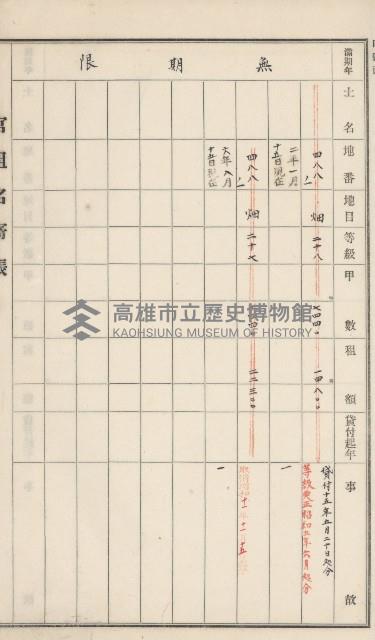 滿期年
土名
地番
地目
等級
甲數
租額
貸付起年
事故
無期限
四八八ノ二
畑
二十八
一四八〇〇
貸付十五年五月二十日起分
等級更正昭和三年六月起分
二年一月
十五日現在
一
四八八ノ二
畑
二十七
二二三〇〇
六年八月
十五日現在
一
官租名寄帳
高雄市立歷史博物館
KAOHSIUNG MUSEUM OF HISTORY